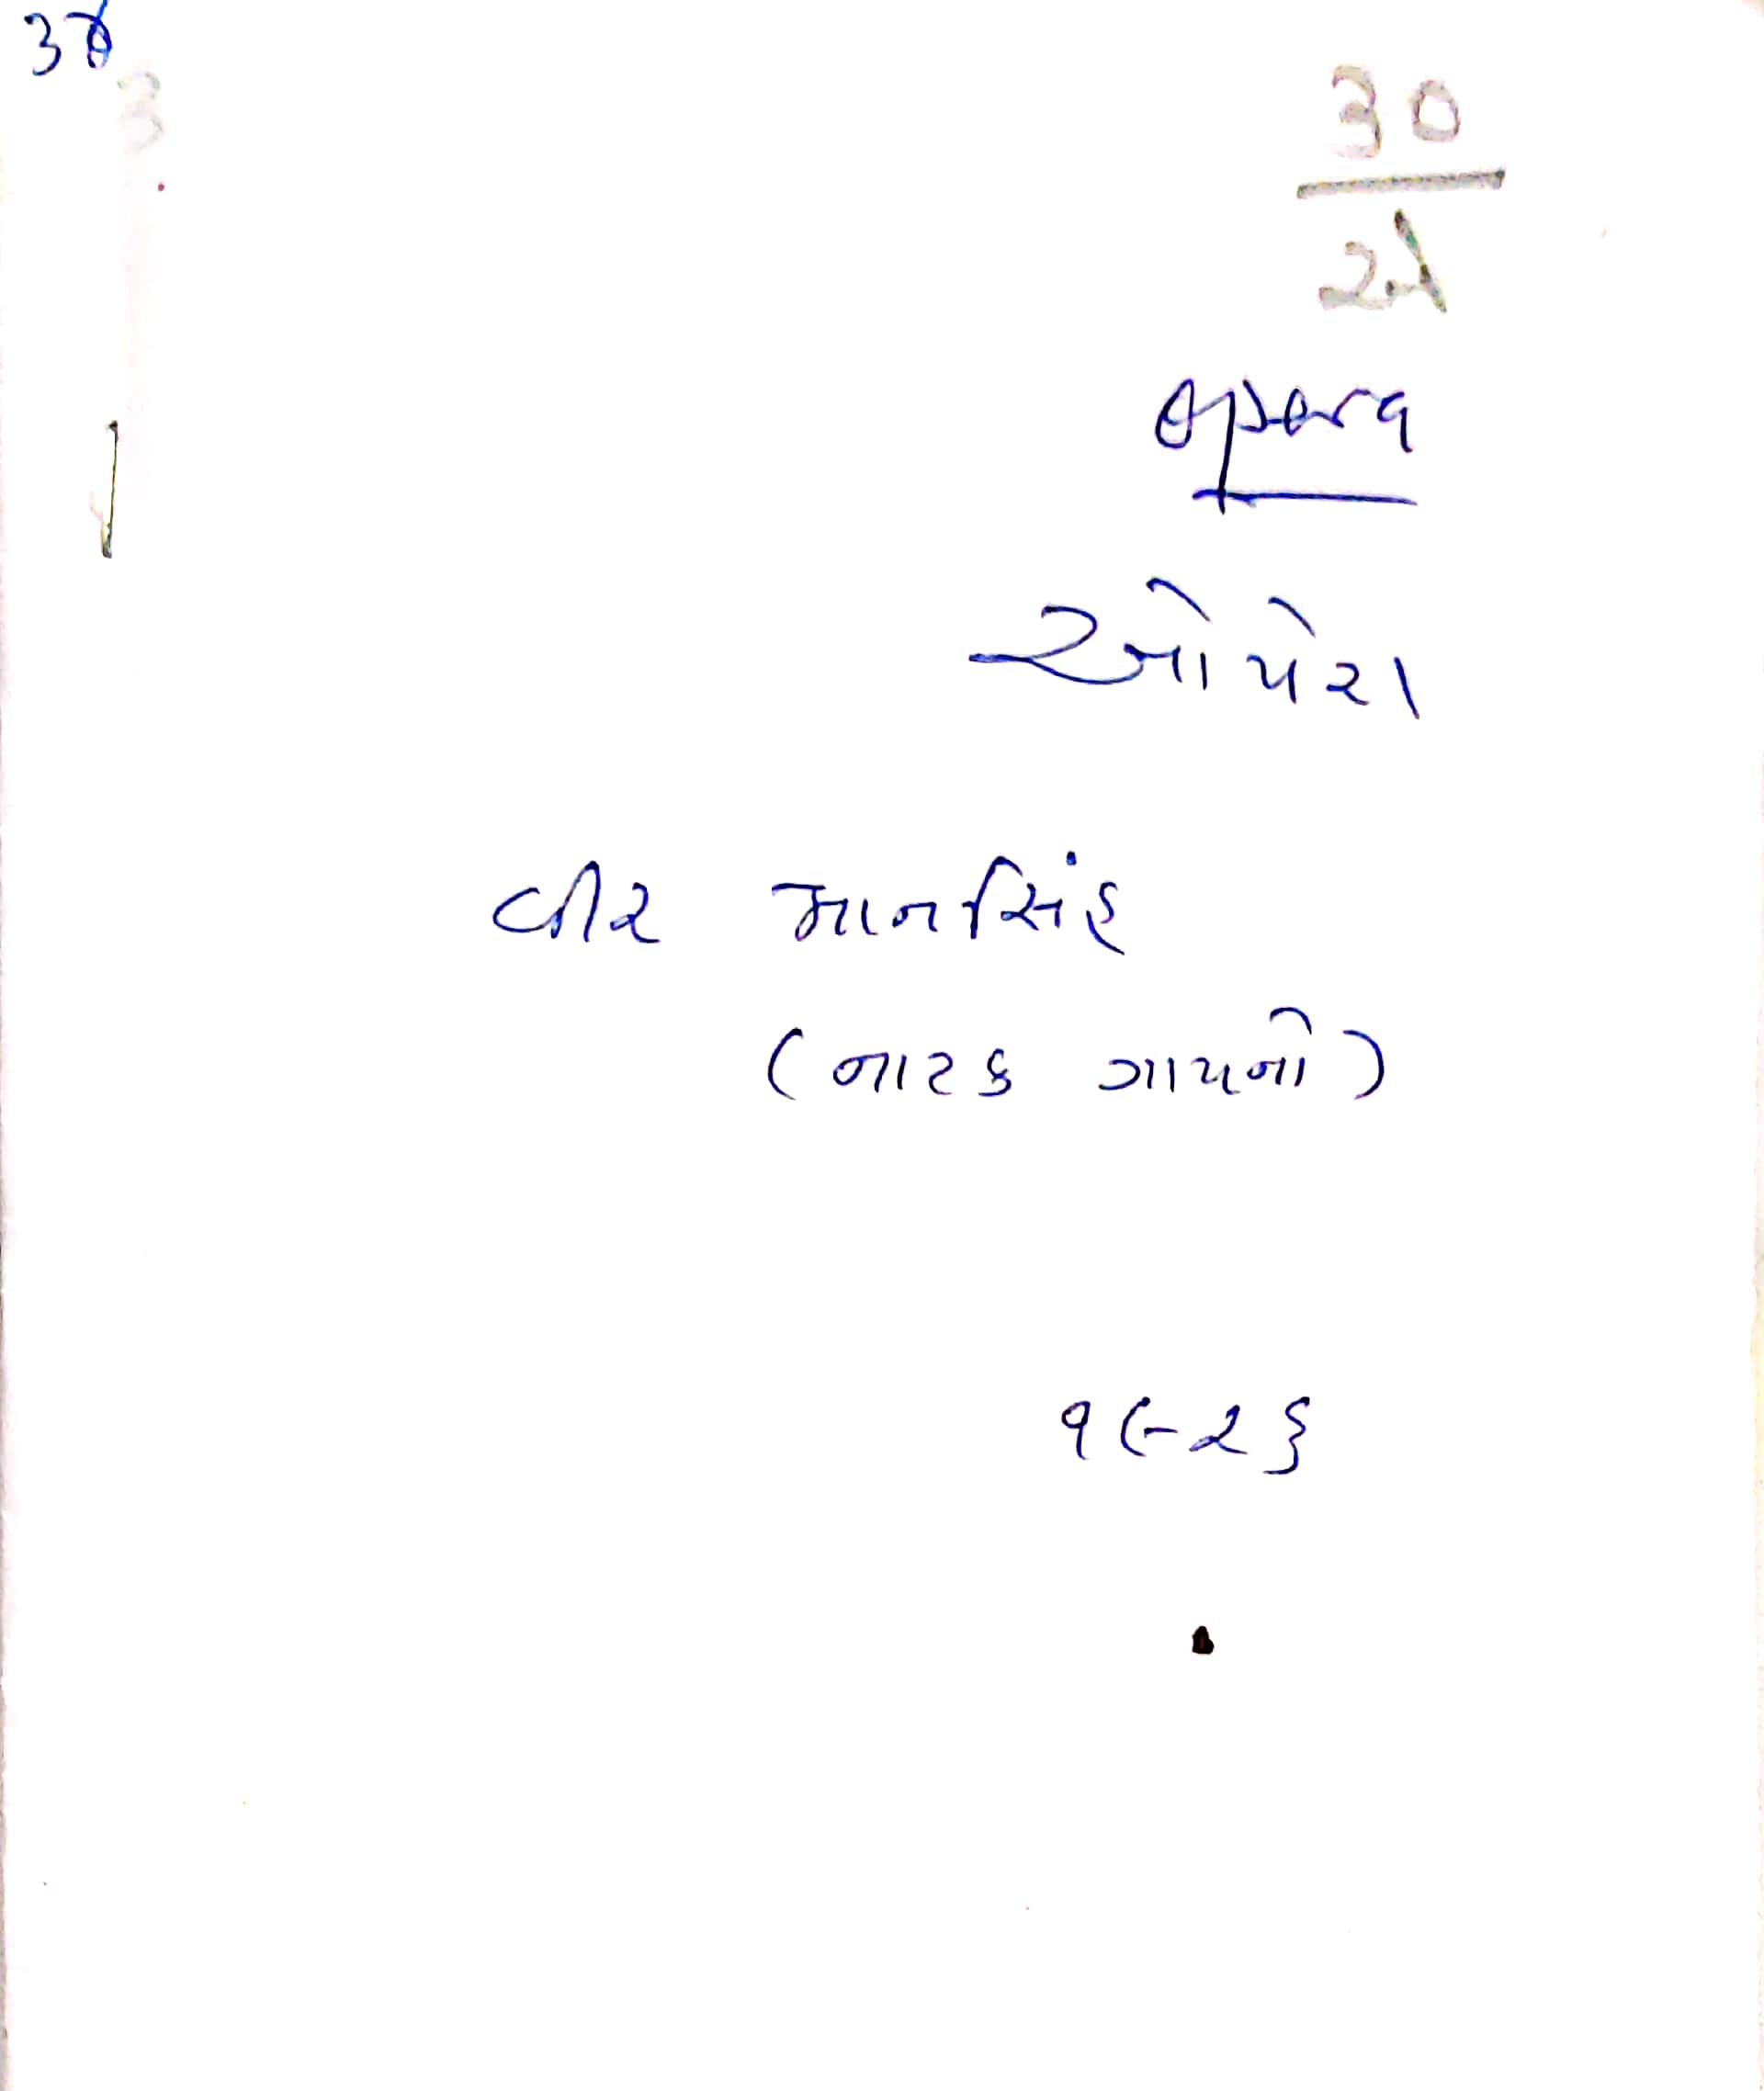 30
opera
ઓપેરા
વીર માનસિંહ
(નાટક ગાયનો)
૧૯૨૩